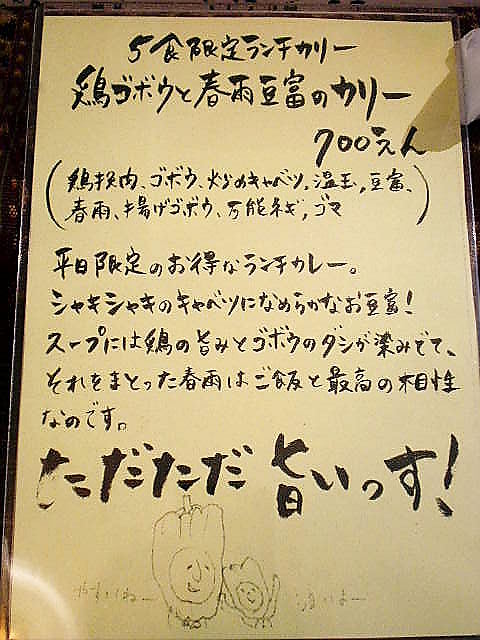 5食限定ランチカリー
鶏ゴボウと春雨豆富のカリー
700えん
鶏挽肉、ゴボウ、炒めキャベツ、温玉、豆富、
春雨、揚げゴボウ、万能ネギ、ゴマ
平日限定のお得なランチカレー。
シャキシャキのキャベツになめらかなお豆富!
スープには鶏の旨みとゴボウのダシが染みでて、
それをまとった春雨はご飯と最高の相性
なのです。
ただただ旨いっす!